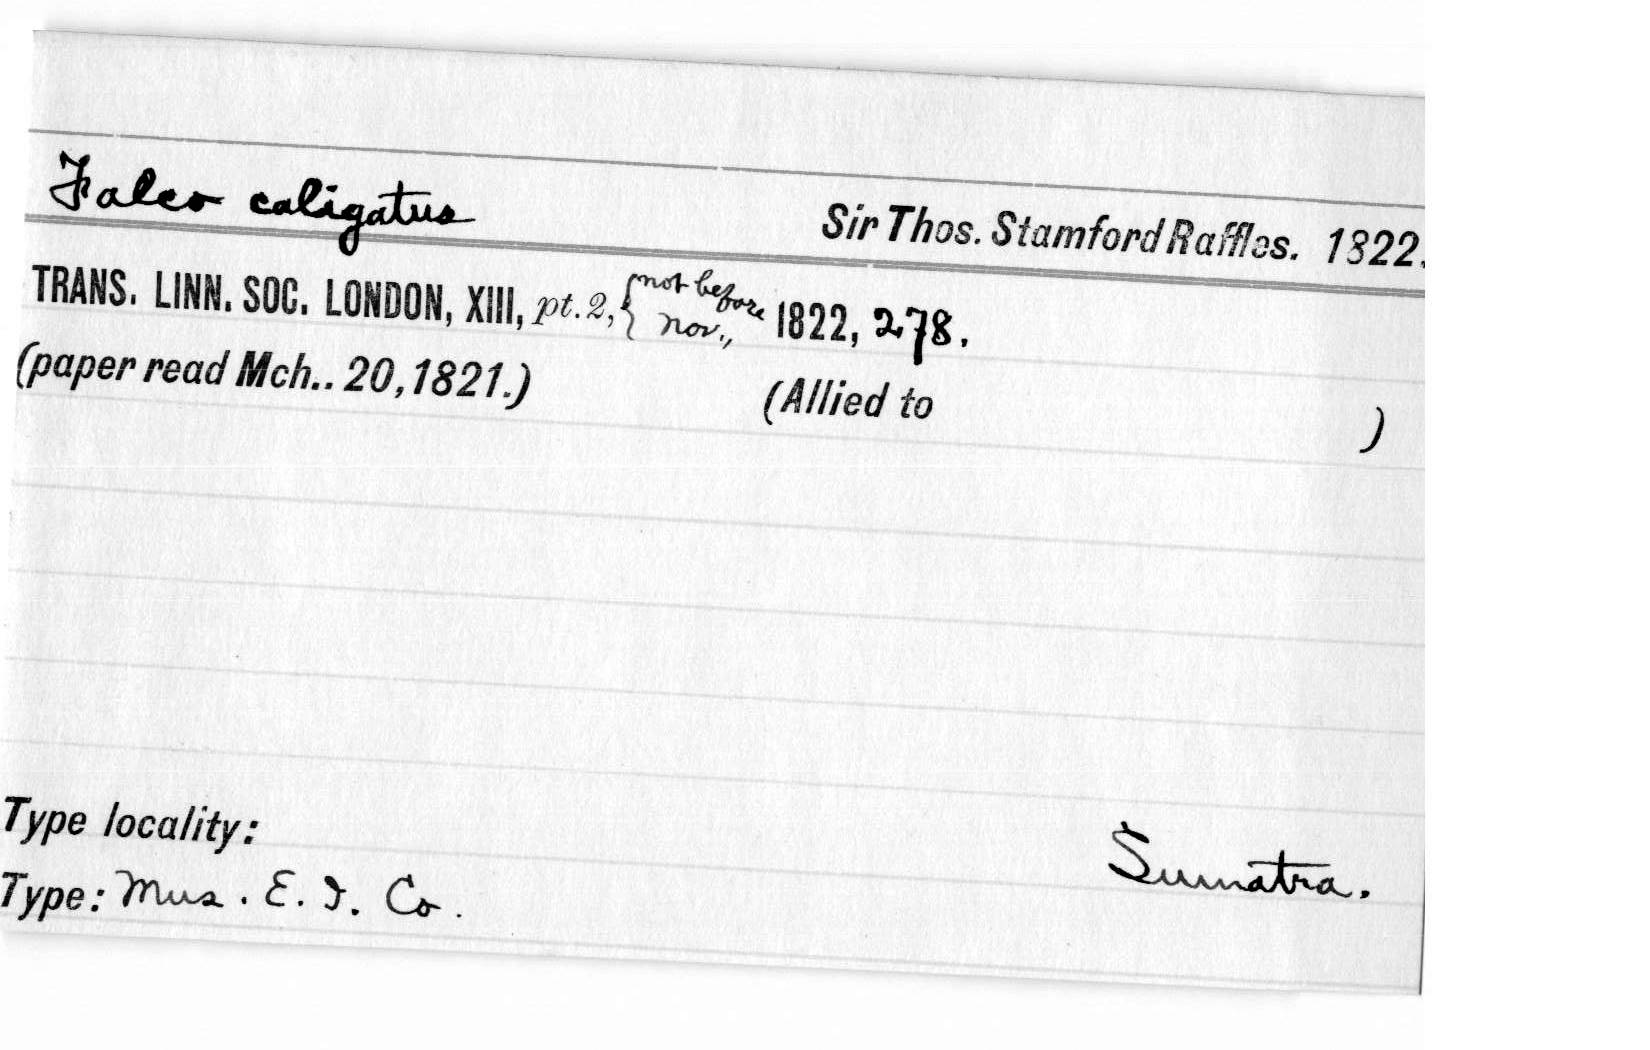 Falco caligatus Sir Thos. Stamford Raffles. 1822.
TRANS. LINN. SOC. LONDON, XIII, pt. 2, {not before Nov., 1822, 278.
(paper read Mch.. 20, 1821.) (Allied to )
Type locality: Sumatra.
Type: Mus. E. I. Co.